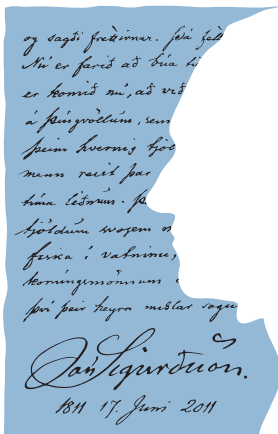 og sagði frettirnar. Þá
Nú er farið að búa
er komið nú, að við
á Þíngvöllum, sem
þeim hvernig tjöl
menn reist þar
tíma liðnum. Þ
tjöldum
í vatninu,
konúngsmönnum
því þeir heyra
Jón Sigurðsson.
1811 17. Júní 2011